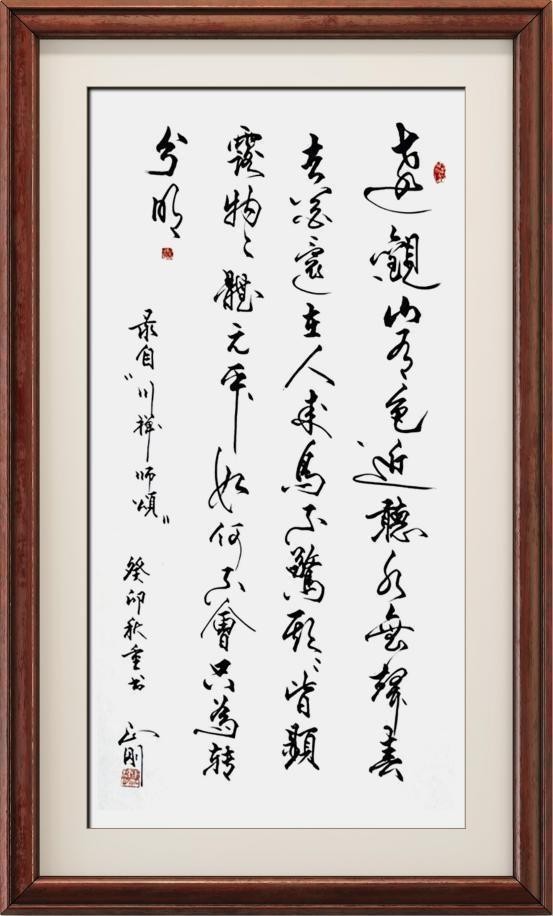 遠觀山有色近聽水無聲春
去花還在人來鳥不驚頭〻皆顯
露物〻體元平如何不會只為转
分明
录自“川禪師頌” 癸卯秋重书 正刚